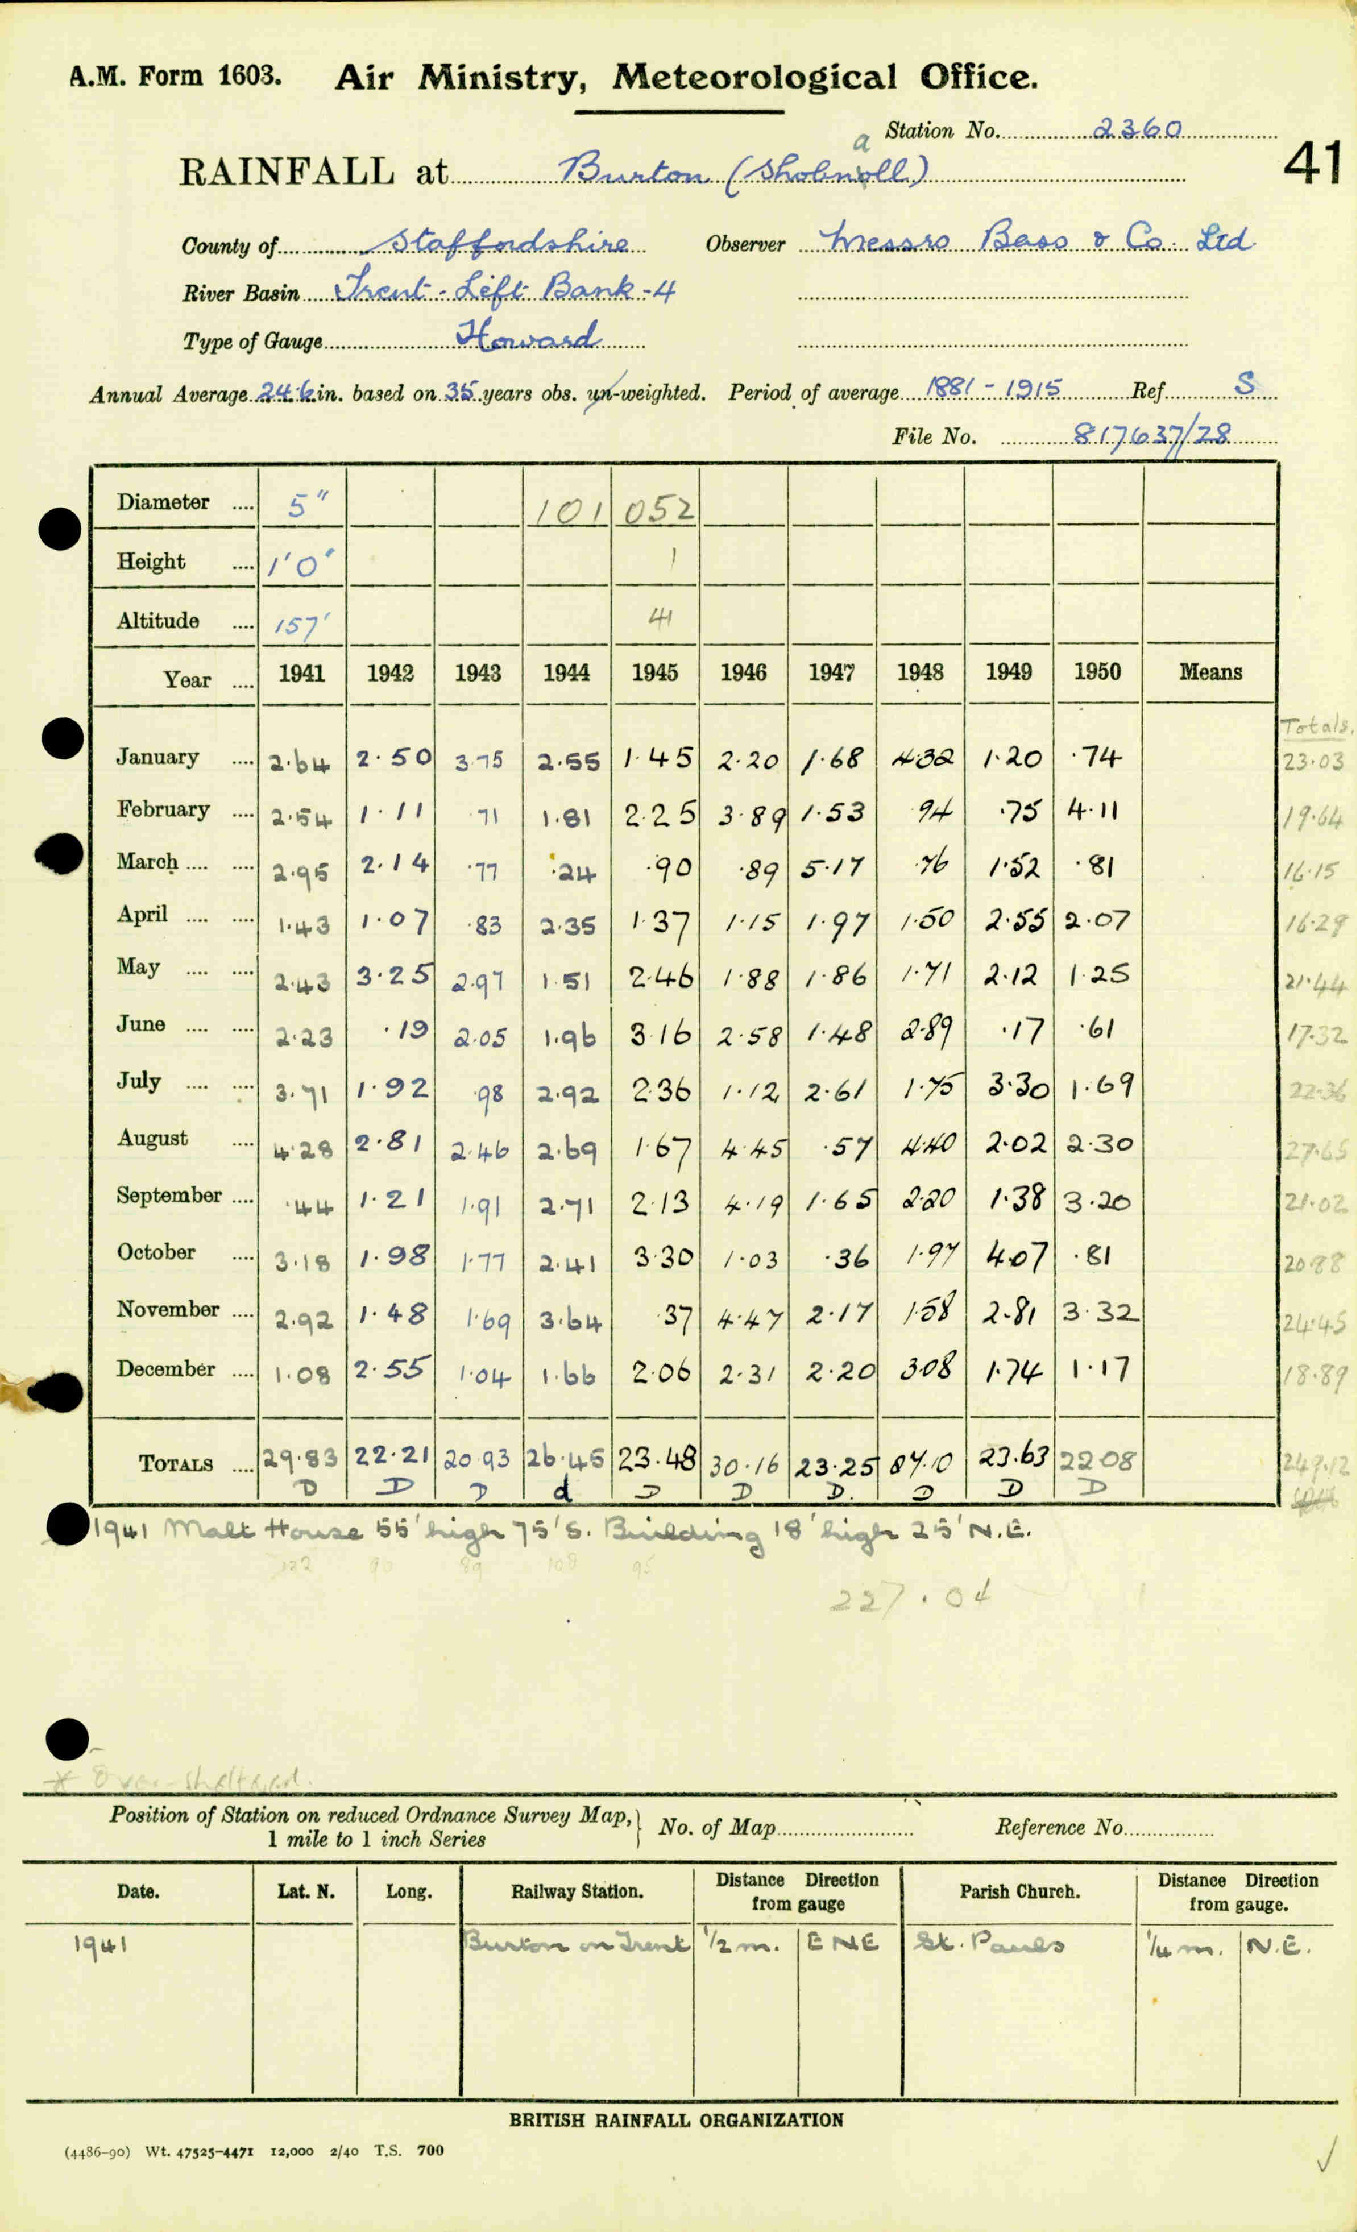 A.M. Form 1603. Air Ministry, Meteorological Office.
Station No. 2360
41
RAINFALL at Burton (Shobnall)
County of Staffordshire Observer Messrs Bass & Co. Ltd
River Basin Trent - Left Bank - 4
Type of Gauge Howard
Annual Average 24.6 in. based on 35 years obs. un-weighted. Period of average 1881 - 1915 Ref. S
File No. 817637/28
Diameter .... 5" 101 052
Height .... 1'0" 1
Altitude .... 157' 41
Year .... 1941 1942 1943 1944 1945 1946 1947 1948 1949 1950 Means
Totals.
January .... 2.64 2.50 3.75 2.55 1.45 2.20 1.68 4.32 1.20 .74 23.03
February .... 2.54 1.11 .71 1.81 2.25 3.89 1.53 .94 .75 4.11 19.64
March .... .... 2.95 2.14 .77 .24 .90 .89 5.17 .76 1.52 .81 16.15
April .... .... 1.43 1.07 .83 2.35 1.37 1.15 1.97 1.50 2.55 2.07 16.29
May .... .... 2.43 3.25 2.97 1.51 2.46 1.88 1.86 1.71 2.12 1.25 21.44
June .... .... 2.23 .19 2.05 1.96 3.16 2.58 1.48 2.89 .17 .61 17.32
July .... .... 3.71 1.92 .98 2.92 2.36 1.12 2.61 1.75 3.30 1.69 22.36
August .... 4.28 2.81 2.46 2.69 1.67 4.45 .57 4.40 2.02 2.30 27.65
September .... .44 1.21 1.91 2.71 2.13 4.19 1.65 2.20 1.38 3.20 21.02
October .... 3.18 1.98 1.77 2.41 3.30 1.03 .36 1.97 4.07 .81 20.88
November .... 2.92 1.48 1.69 3.64 .37 4.47 2.17 1.58 2.81 3.32 24.45
December .... 1.08 2.55 1.04 1.66 2.06 2.31 2.20 3.08 1.74 1.17 18.89
TOTALS .... 29.83 22.21 20.93 26.45 23.48 30.16 23.25 27.10 23.63 22.08 249.12
D D D d D D D. D D D
1941 Malt House 55' high 75' S. Building 18' high 25' N.E.
122 90 89 108 95
227.04
* Over-sheltered.
Position of Station on reduced Ordnance Survey Map,} No. of Map Reference No.
1 mile to 1 inch Series
Date. Lat. N. Long. Railway Station. Distance Direction from gauge Parish Church. Distance Direction from gauge.
1941 Burton on Trent 1/2 m. ENE St. Pauls 1/4 m. N.E.
BRITISH RAINFALL ORGANIZATION
(4486-90) Wt. 47525-4471 12,000 2/40 T.S. 700